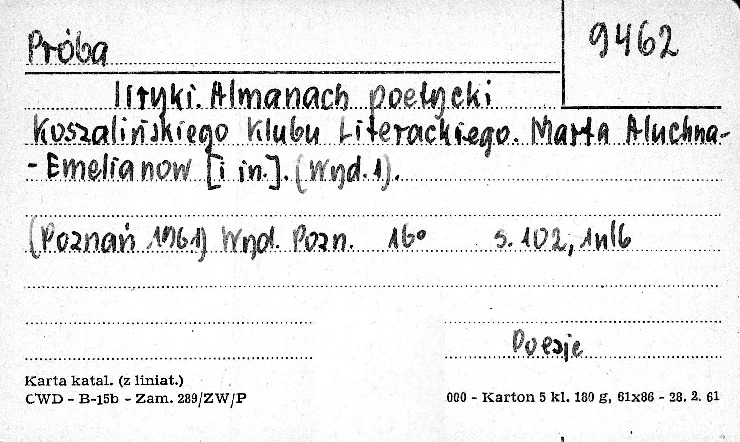 Próba
9462
liryki. Almanach poetycki
Koszalińskiego Klubu Literackiego. Marta Aluchna-
-Emelianow [i in.]. (Wyd. 1).
(Poznań 1961) Wyd. Pozn. 16° s. 102, 1nlb
Poezje
Karta katal. (z liniat.)
CWD - B-15b - Zam. 289/ZW/P
000 - Karton 5 kl. 180 g, 61x86 - 28. 2. 61